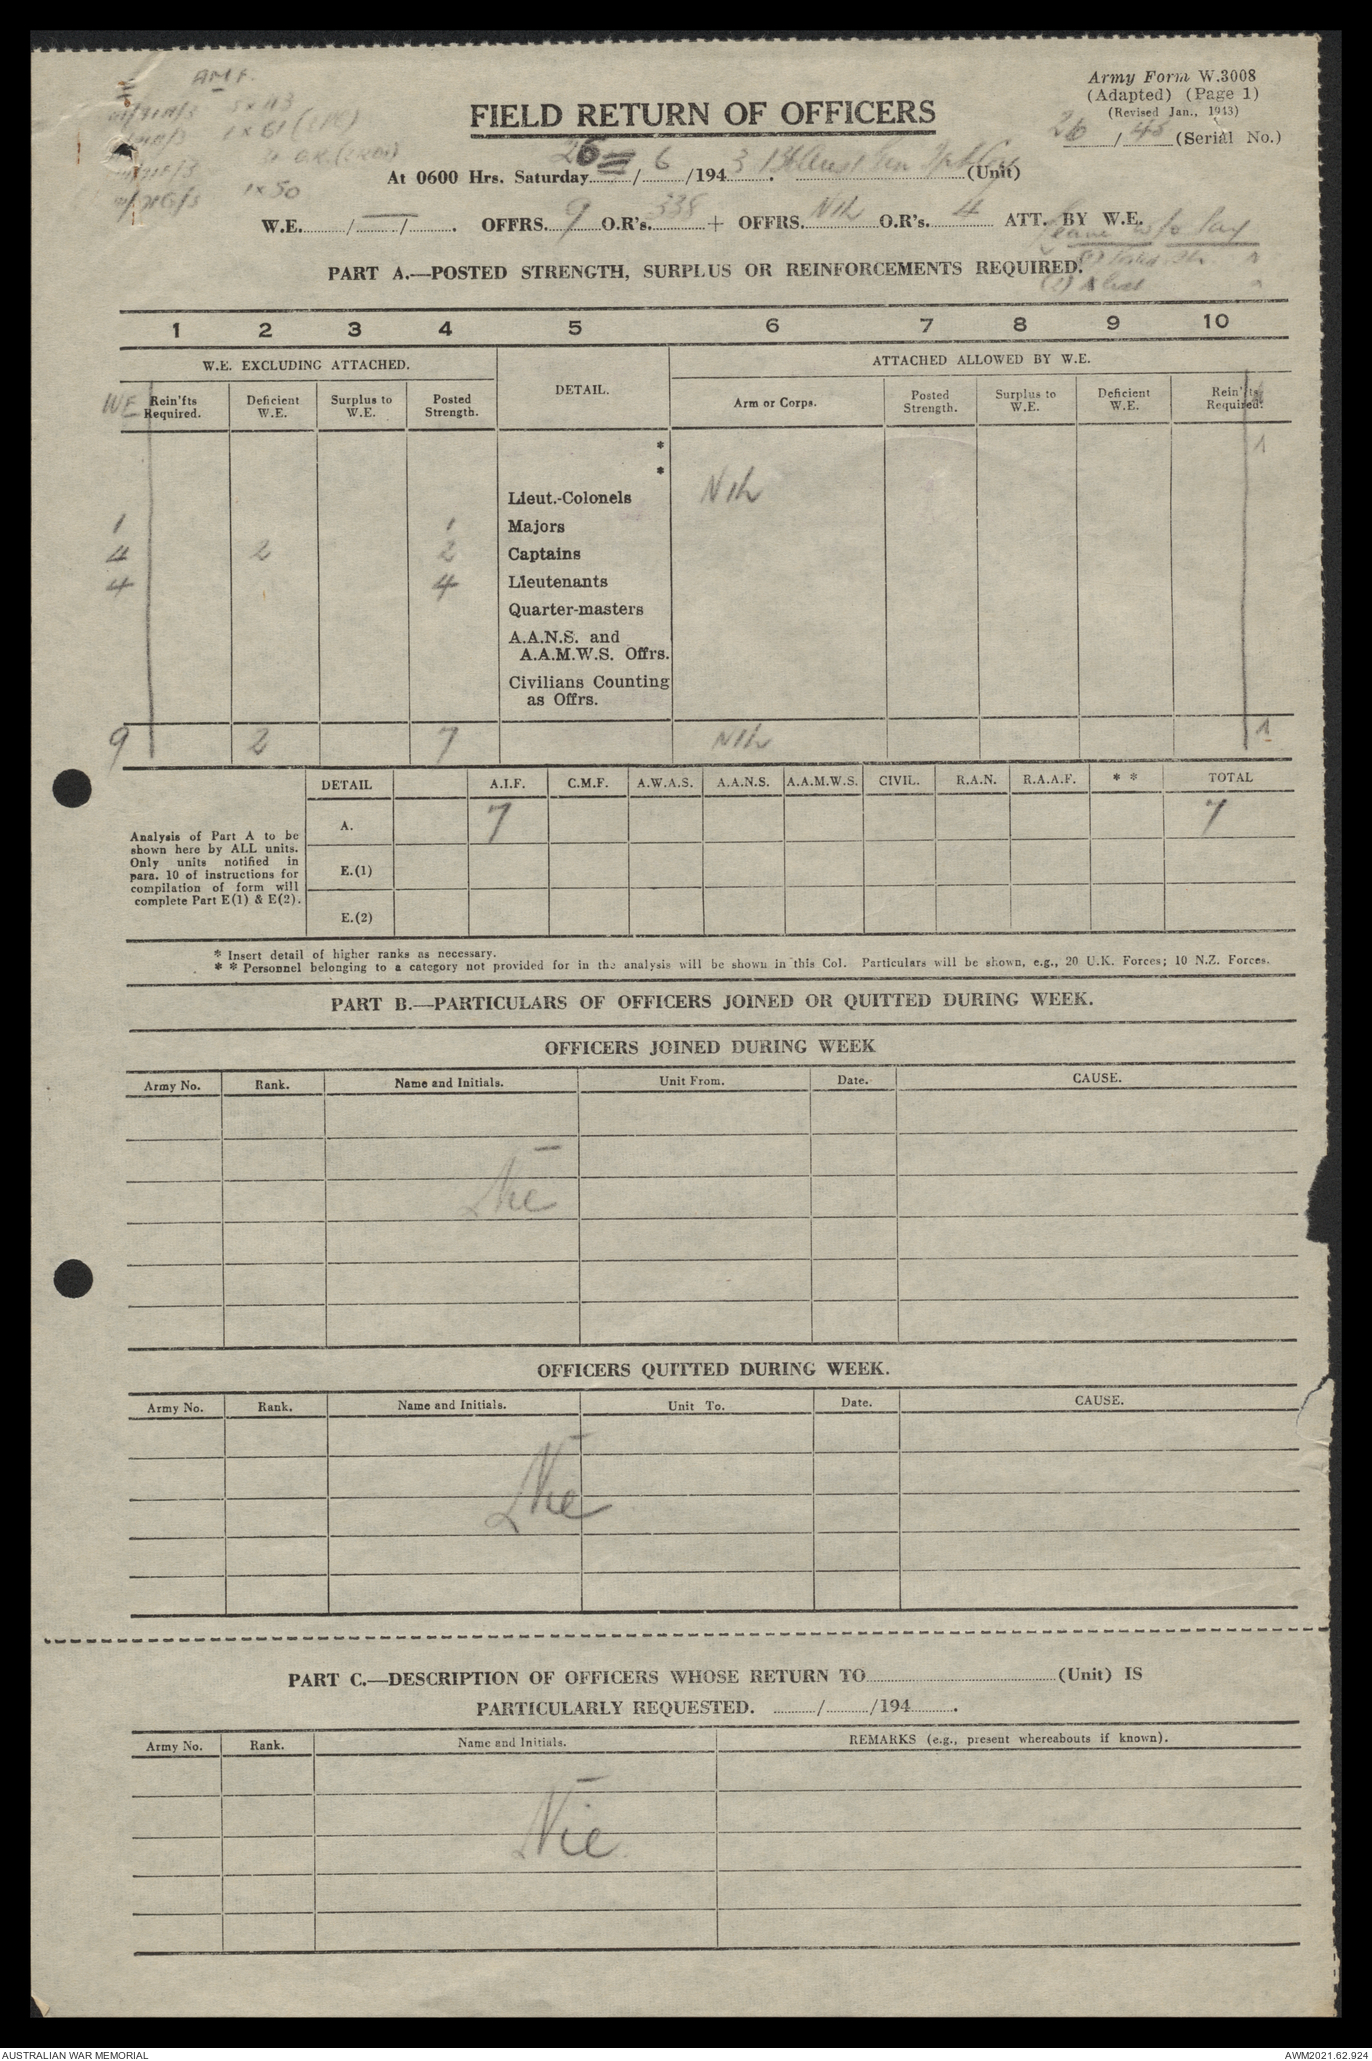 A.M.F.
Army Form W.3008
(Adapted) (Page 1)
(Revised Jan., 1943)
FIELD RETURN OF OFFICERS
26/48 (Serial No.)
At 0600 Hrs. Saturday 26/6/1943. 1 Aust Gen Tpt Coy (Unit)
1 x 50
W.E. / / . OFFRS. 9 O.R's. 338 + OFFRS. Nil O.R's. 4 ATT. BY W.E.
Leave w/o Pay
PART A.—POSTED STRENGTH, SURPLUS OR REINFORCEMENTS REQUIRED.
1 2 3 4 5 6 7 8 9 10
W.E. EXCLUDING ATTACHED. DETAIL. ATTACHED ALLOWED BY W.E.
WE Rein'fts Required. Deficient W.E. Surplus to W.E. Posted Strength. Arm or Corps. Posted Strength. Surplus to W.E. Deficient W.E. Rein'fts Required.
*
*
Lieut.-Colonels Nil
1 1 Majors
4 2 2 Captains
4 4 Lieutenants
Quarter-masters
A.A.N.S. and
A.A.M.W.S. Offrs.
Civilians Counting
as Offrs.
9 2 7 Nil
DETAIL A.I.F. C.M.F. A.W.A.S. A.A.N.S. A.A.M.W.S. CIVIL. R.A.N. R.A.A.F. * * TOTAL
A. 7 7
Analysis of Part A to be
shown here by ALL units.
Only units notified in
para. 10 of instructions for
compilation of form will
complete Part E(1) & E(2).
E.(1)
E.(2)
* Insert detail of higher ranks as necessary.
* * Personnel belonging to a category not provided for in the analysis will be shown in this Col. Particulars will be shown, e.g., 20 U.K. Forces; 10 N.Z. Forces.
PART B.—PARTICULARS OF OFFICERS JOINED OR QUITTED DURING WEEK.
OFFICERS JOINED DURING WEEK
Army No. Rank. Name and Initials. Unit From. Date. CAUSE.
Nil
OFFICERS QUITTED DURING WEEK.
Army No. Rank. Name and Initials. Unit To. Date. CAUSE.
Nil
PART C.—DESCRIPTION OF OFFICERS WHOSE RETURN TO (Unit) IS
PARTICULARLY REQUESTED. / /194 .
Army No. Rank. Name and Initials. REMARKS (e.g., present whereabouts if known).
Nil
AUSTRALIAN WAR MEMORIAL
AWM2021.62.924